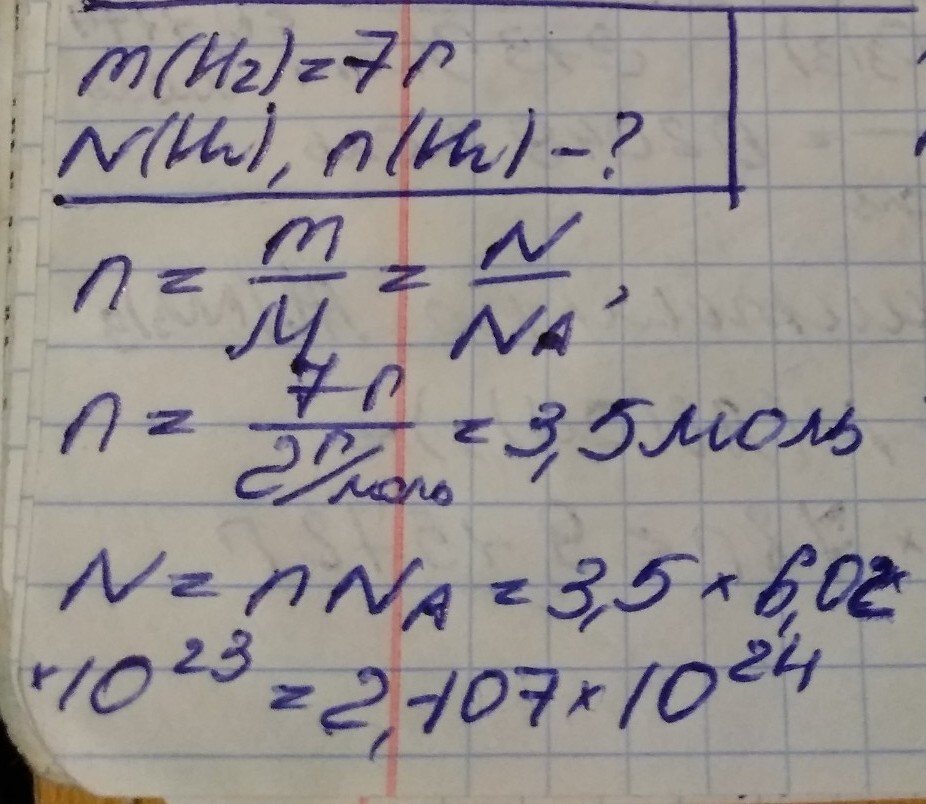 m(H₂)=7г
N(H₂), n(H₂)-?
n = m/M = N/NA,
n = 7г/2г/моль = 3,5моль
N = nNA = 3,5 × 6,02×
×10²³ = 2,107×10²⁴